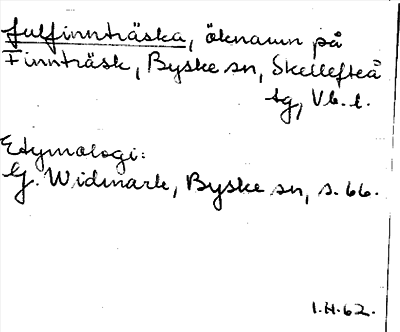 fulfinnträska, öknamn på
Finnträsk, Byske sn, Skellefteå
tg, Vb. l.
Etymologi:
G. Widmark, Byske sn, s. 66.
1.H.62.